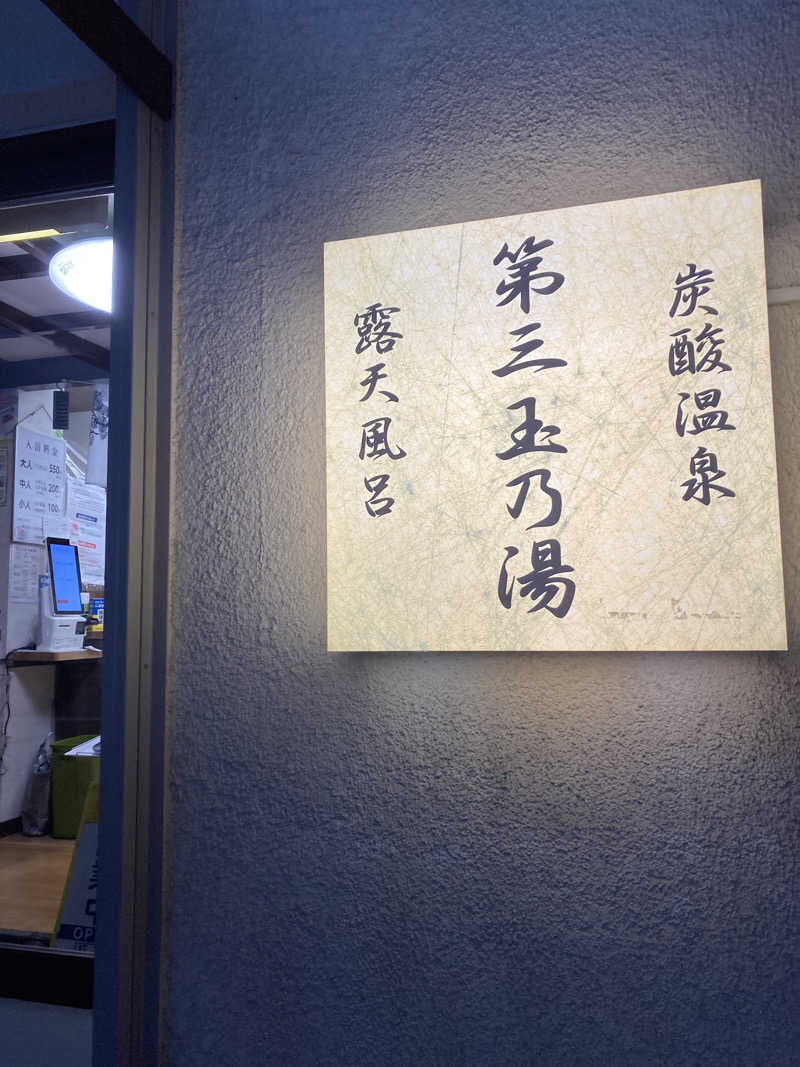 炭酸温泉
第三玉乃湯
露天風呂
入浴料金
大人 550
中人 200
小人 100